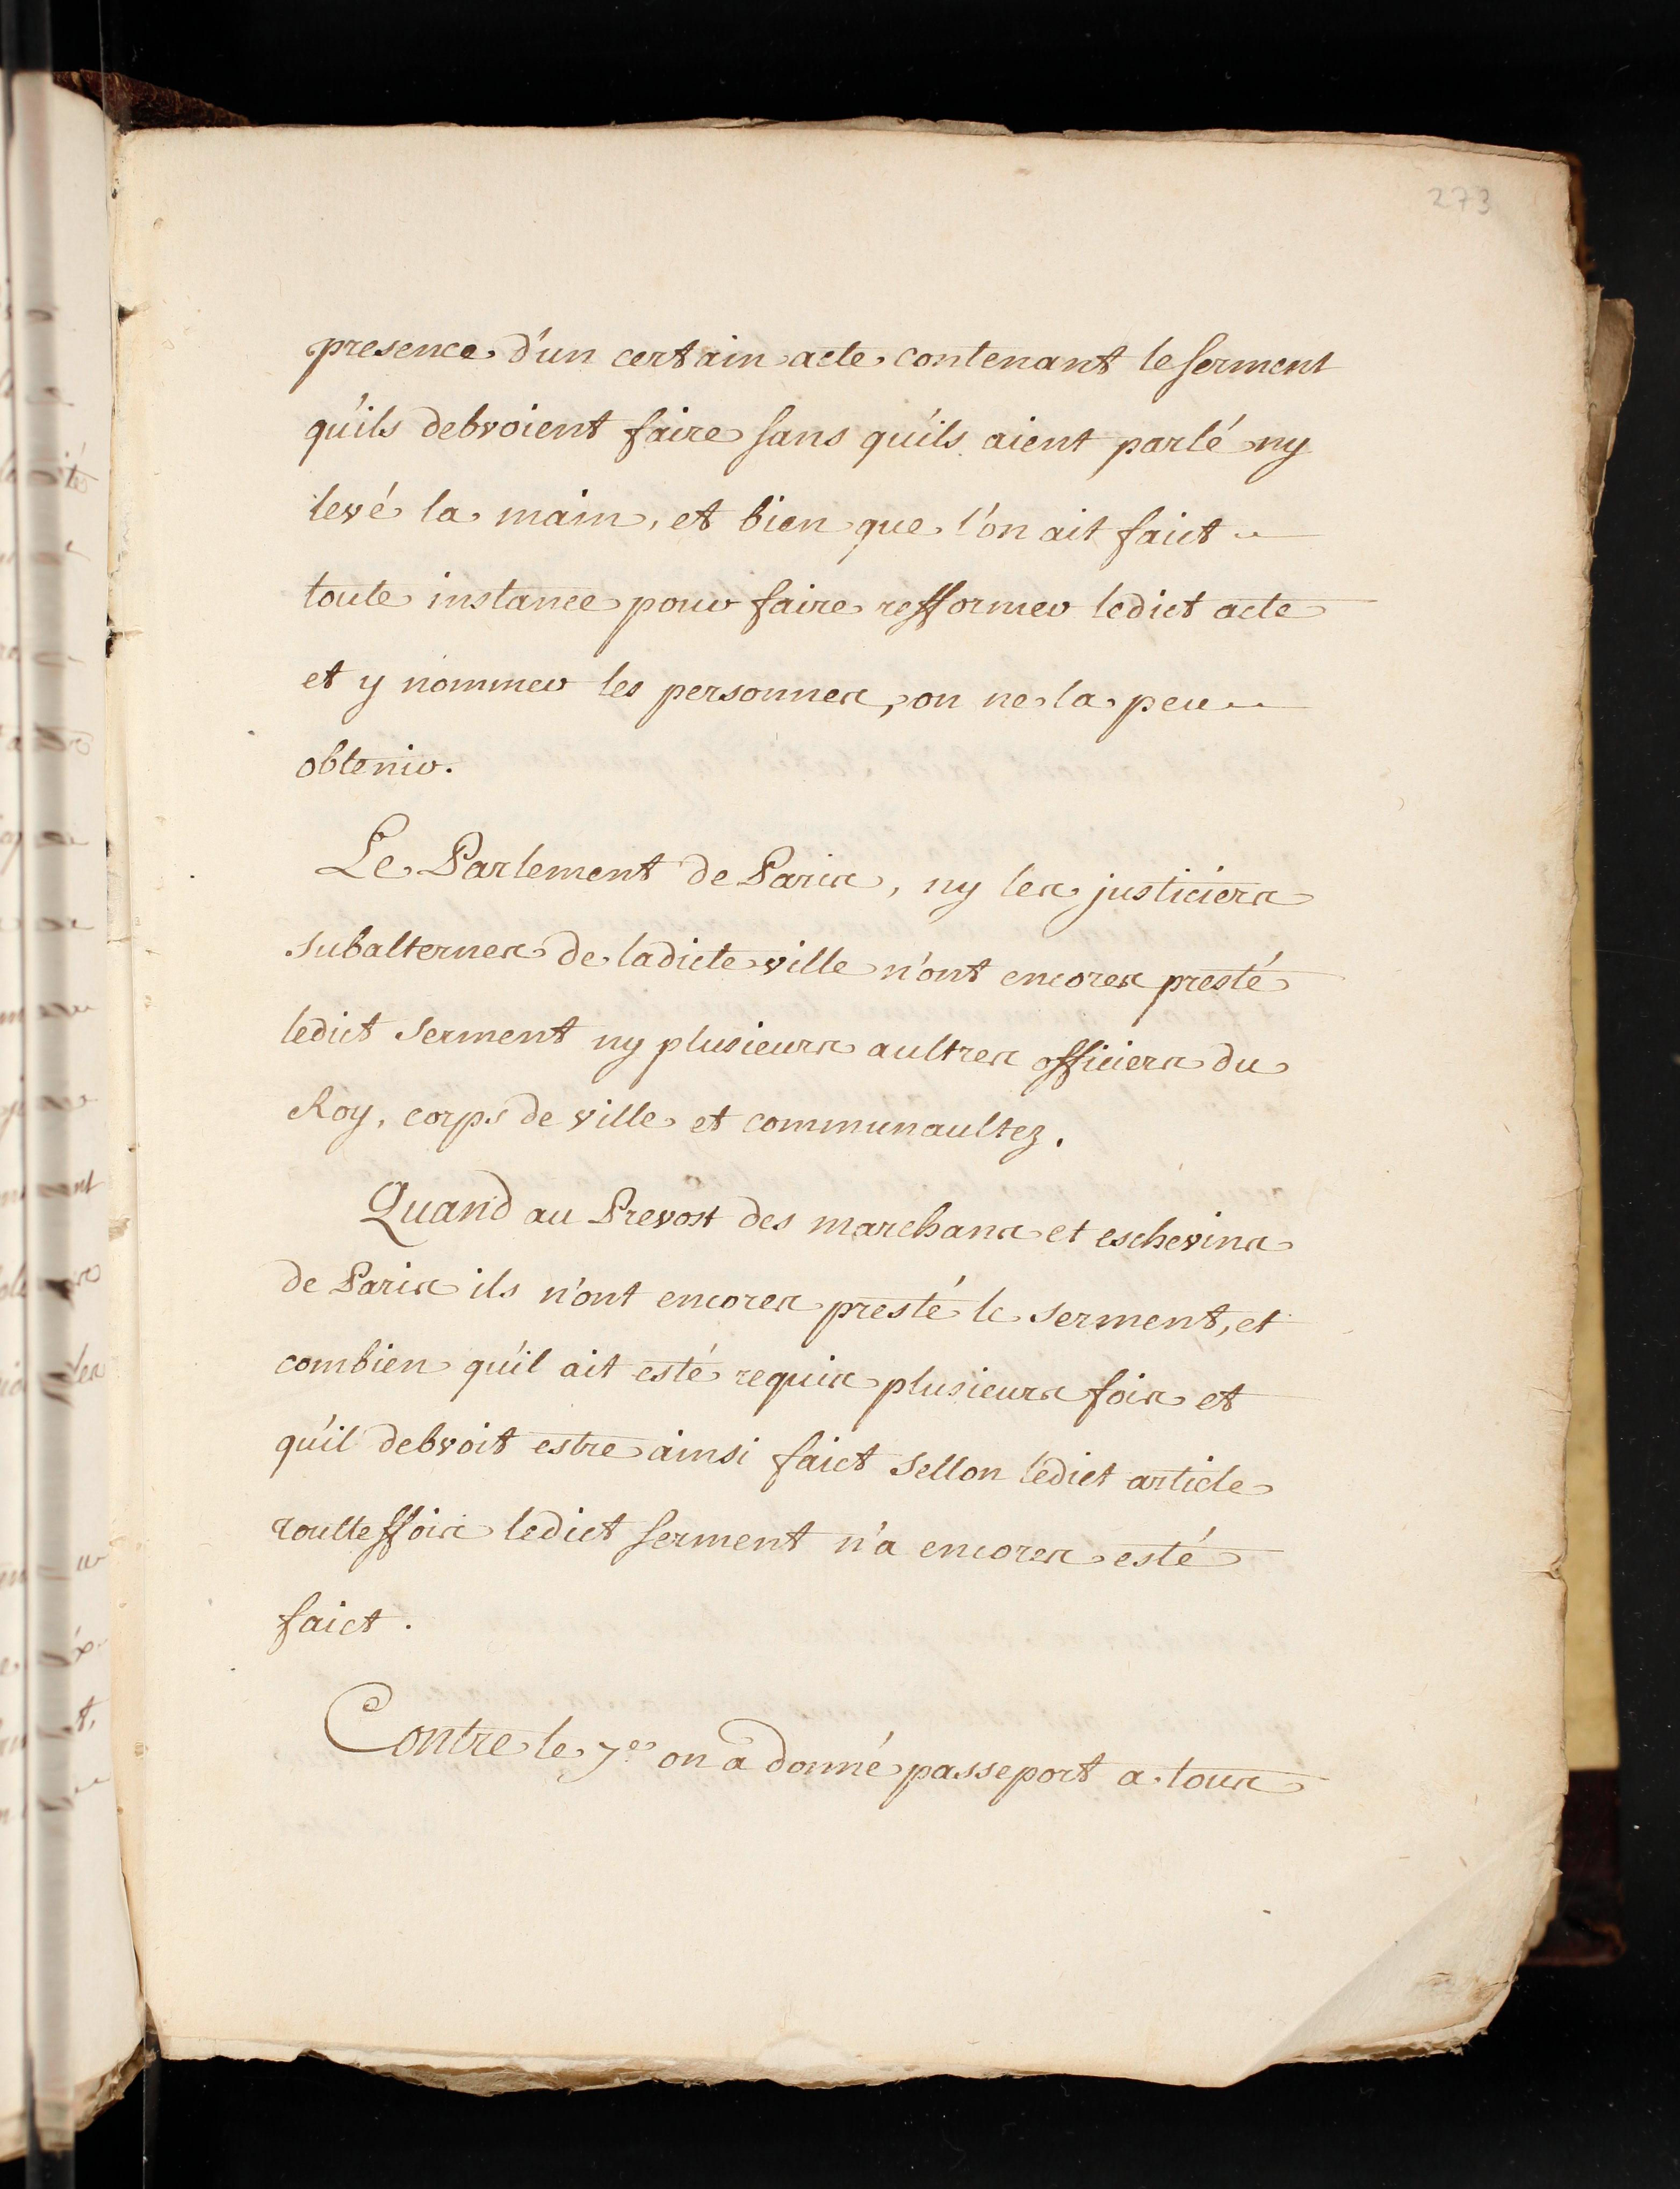 273
presence d'un certain acte contenant le serment
qu'ils debvoient faire sans qu'ils aient parlé ny
levé la main, et bien que l'on ait faict
toute instance pour faire refformer ledict acte
et y nommer les personnes, on ne la peu
obtenir.
Le Parlement de Paris, ny les justiciers
subalternes de ladicte ville n'ont encores presté
ledict serment ny plusieurs aultres officiers du
Roy, corps de ville et communaultez.
Quand au Prevost des marchans et eschevins
de Paris ils n'ont encores presté le serment, et
combien qu'il ait esté requis plusieurs fois et
qu'il debvoit estre ainsi faict sellon ledict article
toutteffois ledict serment n'a encores esté
faict.
Contre le 7e on a donné passeport a tous